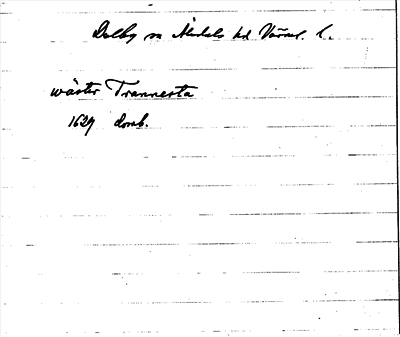 Dalby sn Älvdals hd Värml. l.
wäster Trannesta
1629 domb.